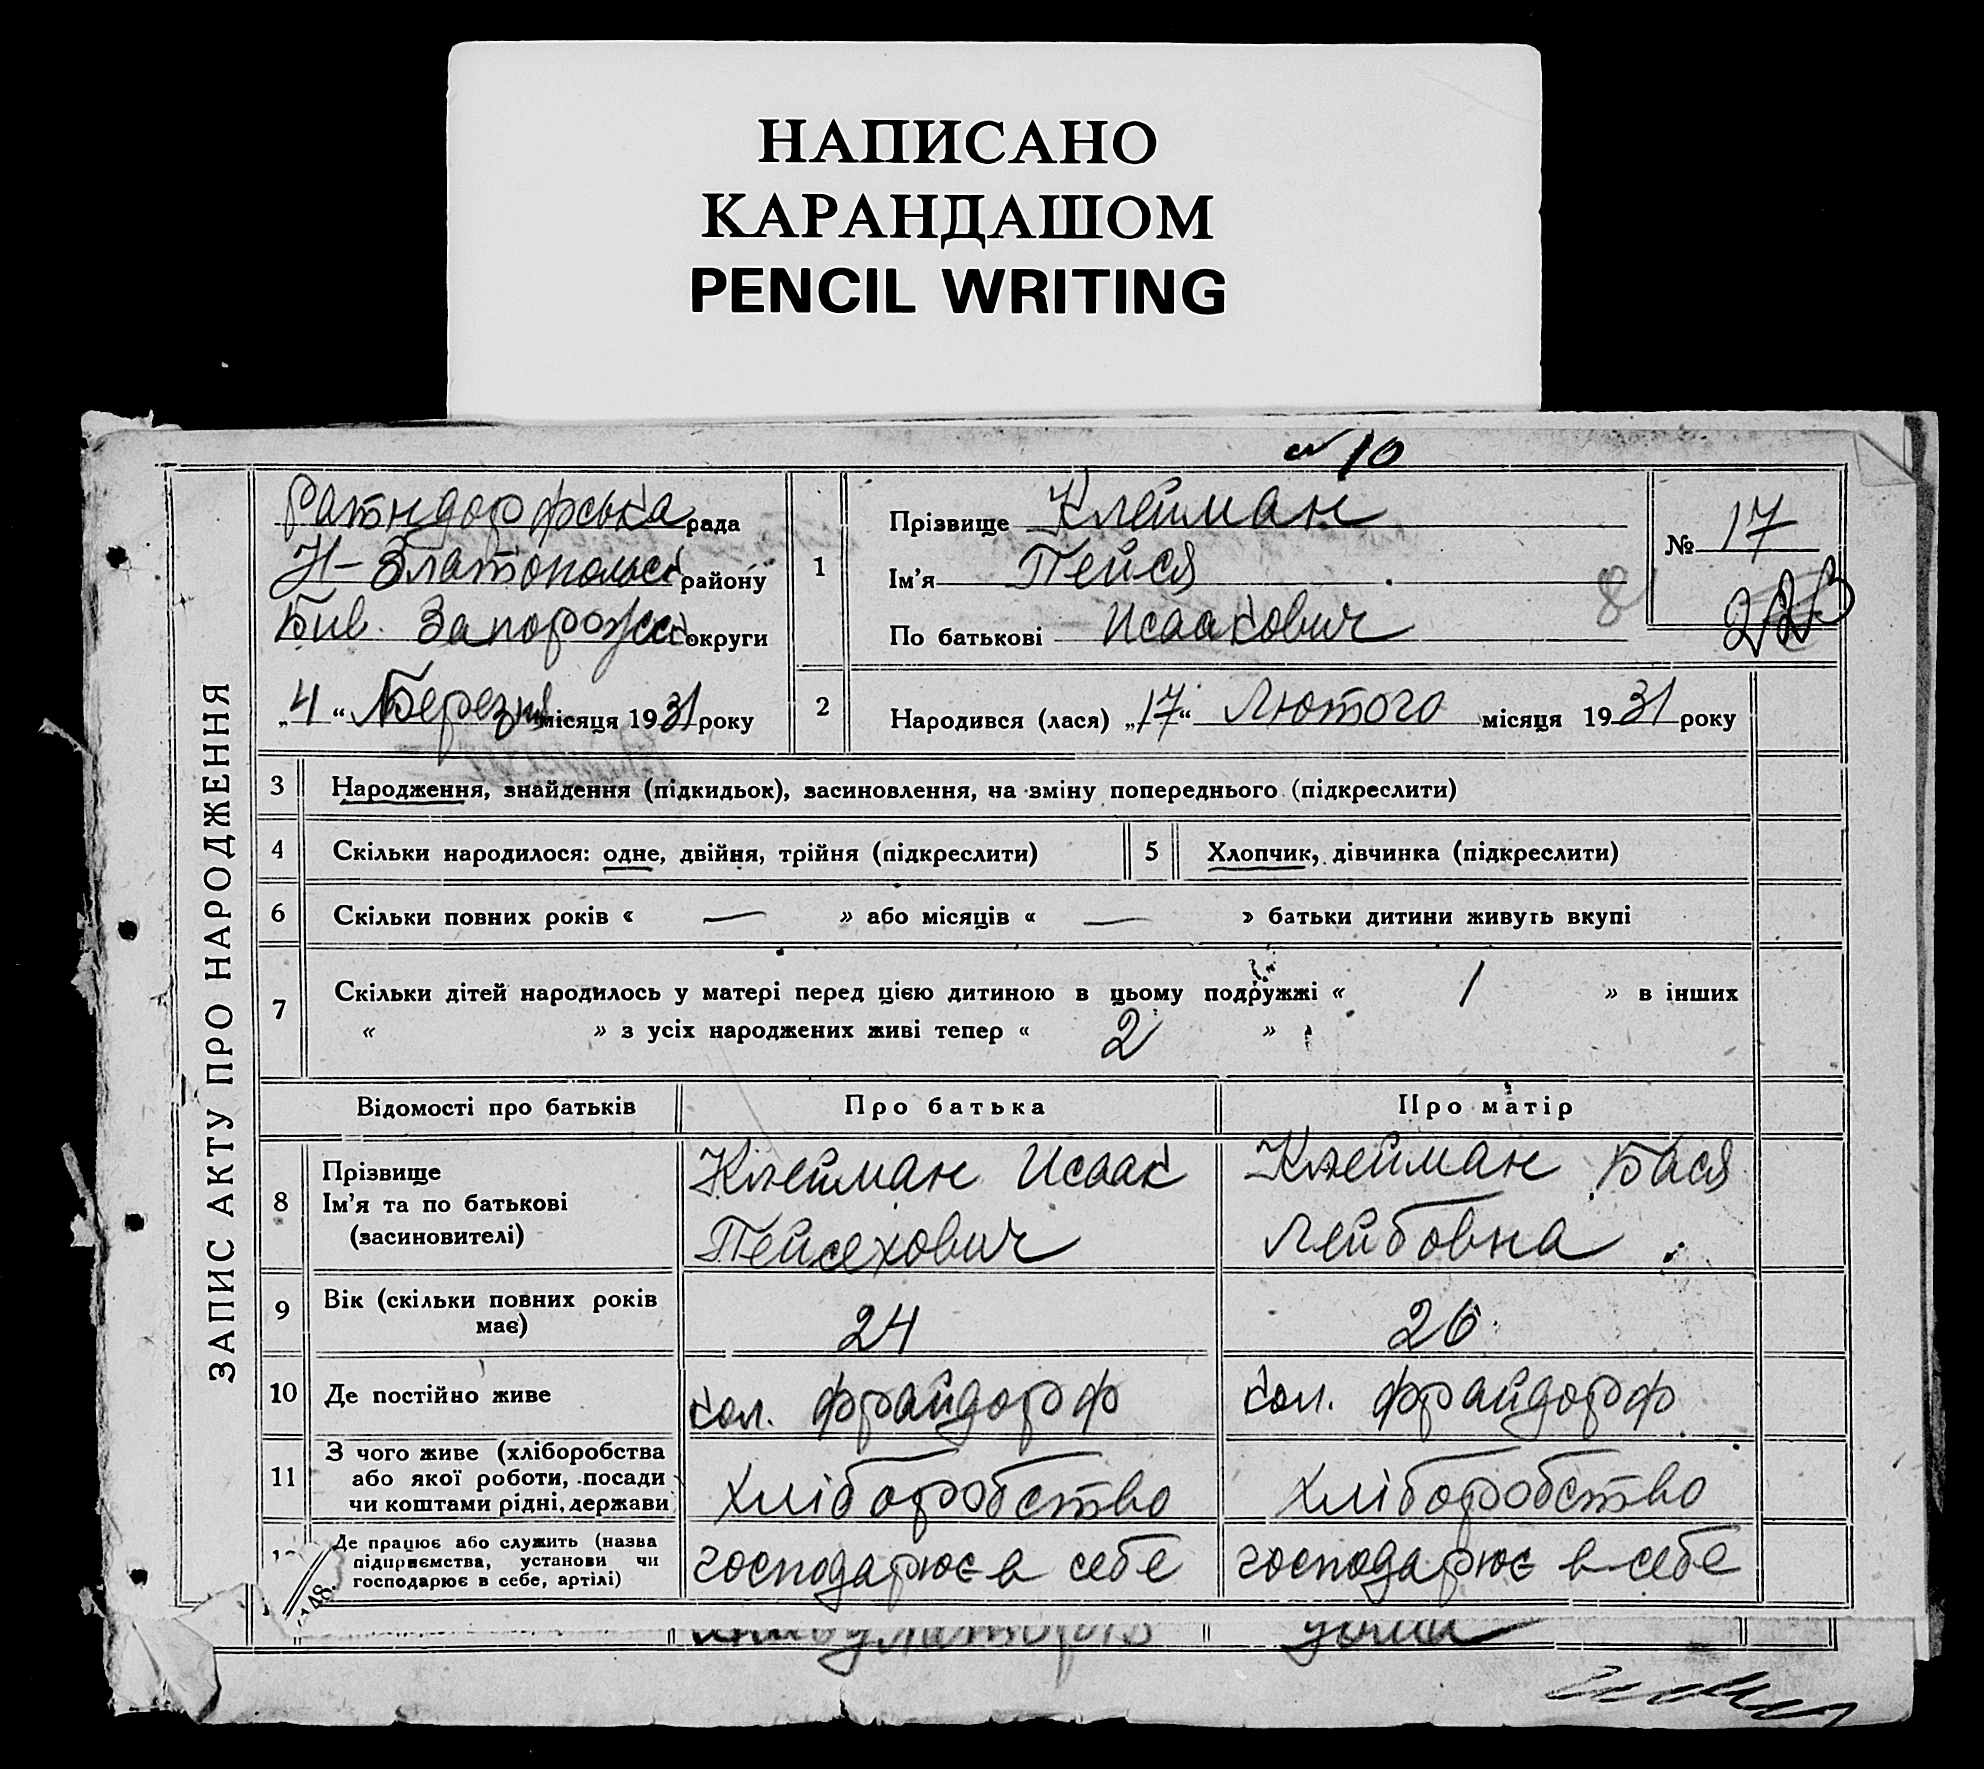 НАПИСАНО
КАРАНДАШОМ
PENCIL WRITING
№ 10
ЗАПИС АКТУ ПРО НАРОДЖЕННЯ
Ратндорфська рада
Н-Златопольск району
Бив. Запорожск округи
„4“ Березня місяця 1931 року
1
Прізвище Клейман
Ім'я Пейся
По батькові Исаакович
8
№ 17
2
Народився (лася) „17“ Лютого місяця 1931 року
3 Народження, знайдення (підкидьок), засиновлення, на зміну попереднього (підкреслити)
4 Скільки народилося: одне, двійня, трійня (підкреслити)
5 Хлопчик, дівчинка (підкреслити)
6 Скільки повних років « — » або місяців « — » батьки дитини живуть вкупі
7 Скільки дітей народилось у матері перед цією дитиною в цьому подружжі « 1 » в інших
« » з усіх народжених живі тепер « 2 »
Відомості про батьків Про батька Про матір
8 Прізвище
Ім'я та по батькові
(засиновителі)
Клейман Исаак
Пейсехович
Клейман Бася
Лейбовна
9 Вік (скільки повних років
має)
24
26
10 Де постійно живе
кол. Фрайдорф
кол. Фрайдорф
11 З чого живе (хліборобства
або якої роботи, посади
чи коштами рідні, держави
хліборобство
хліборобство
Де працює або служить (назва
підприємства, установи чи
господарює в себе, артілі)
господарює в себе
господарює в себе
148.